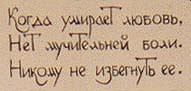 Когда умирает любовь,
Нет мучительней боли.
Никому не избегнуть ее.